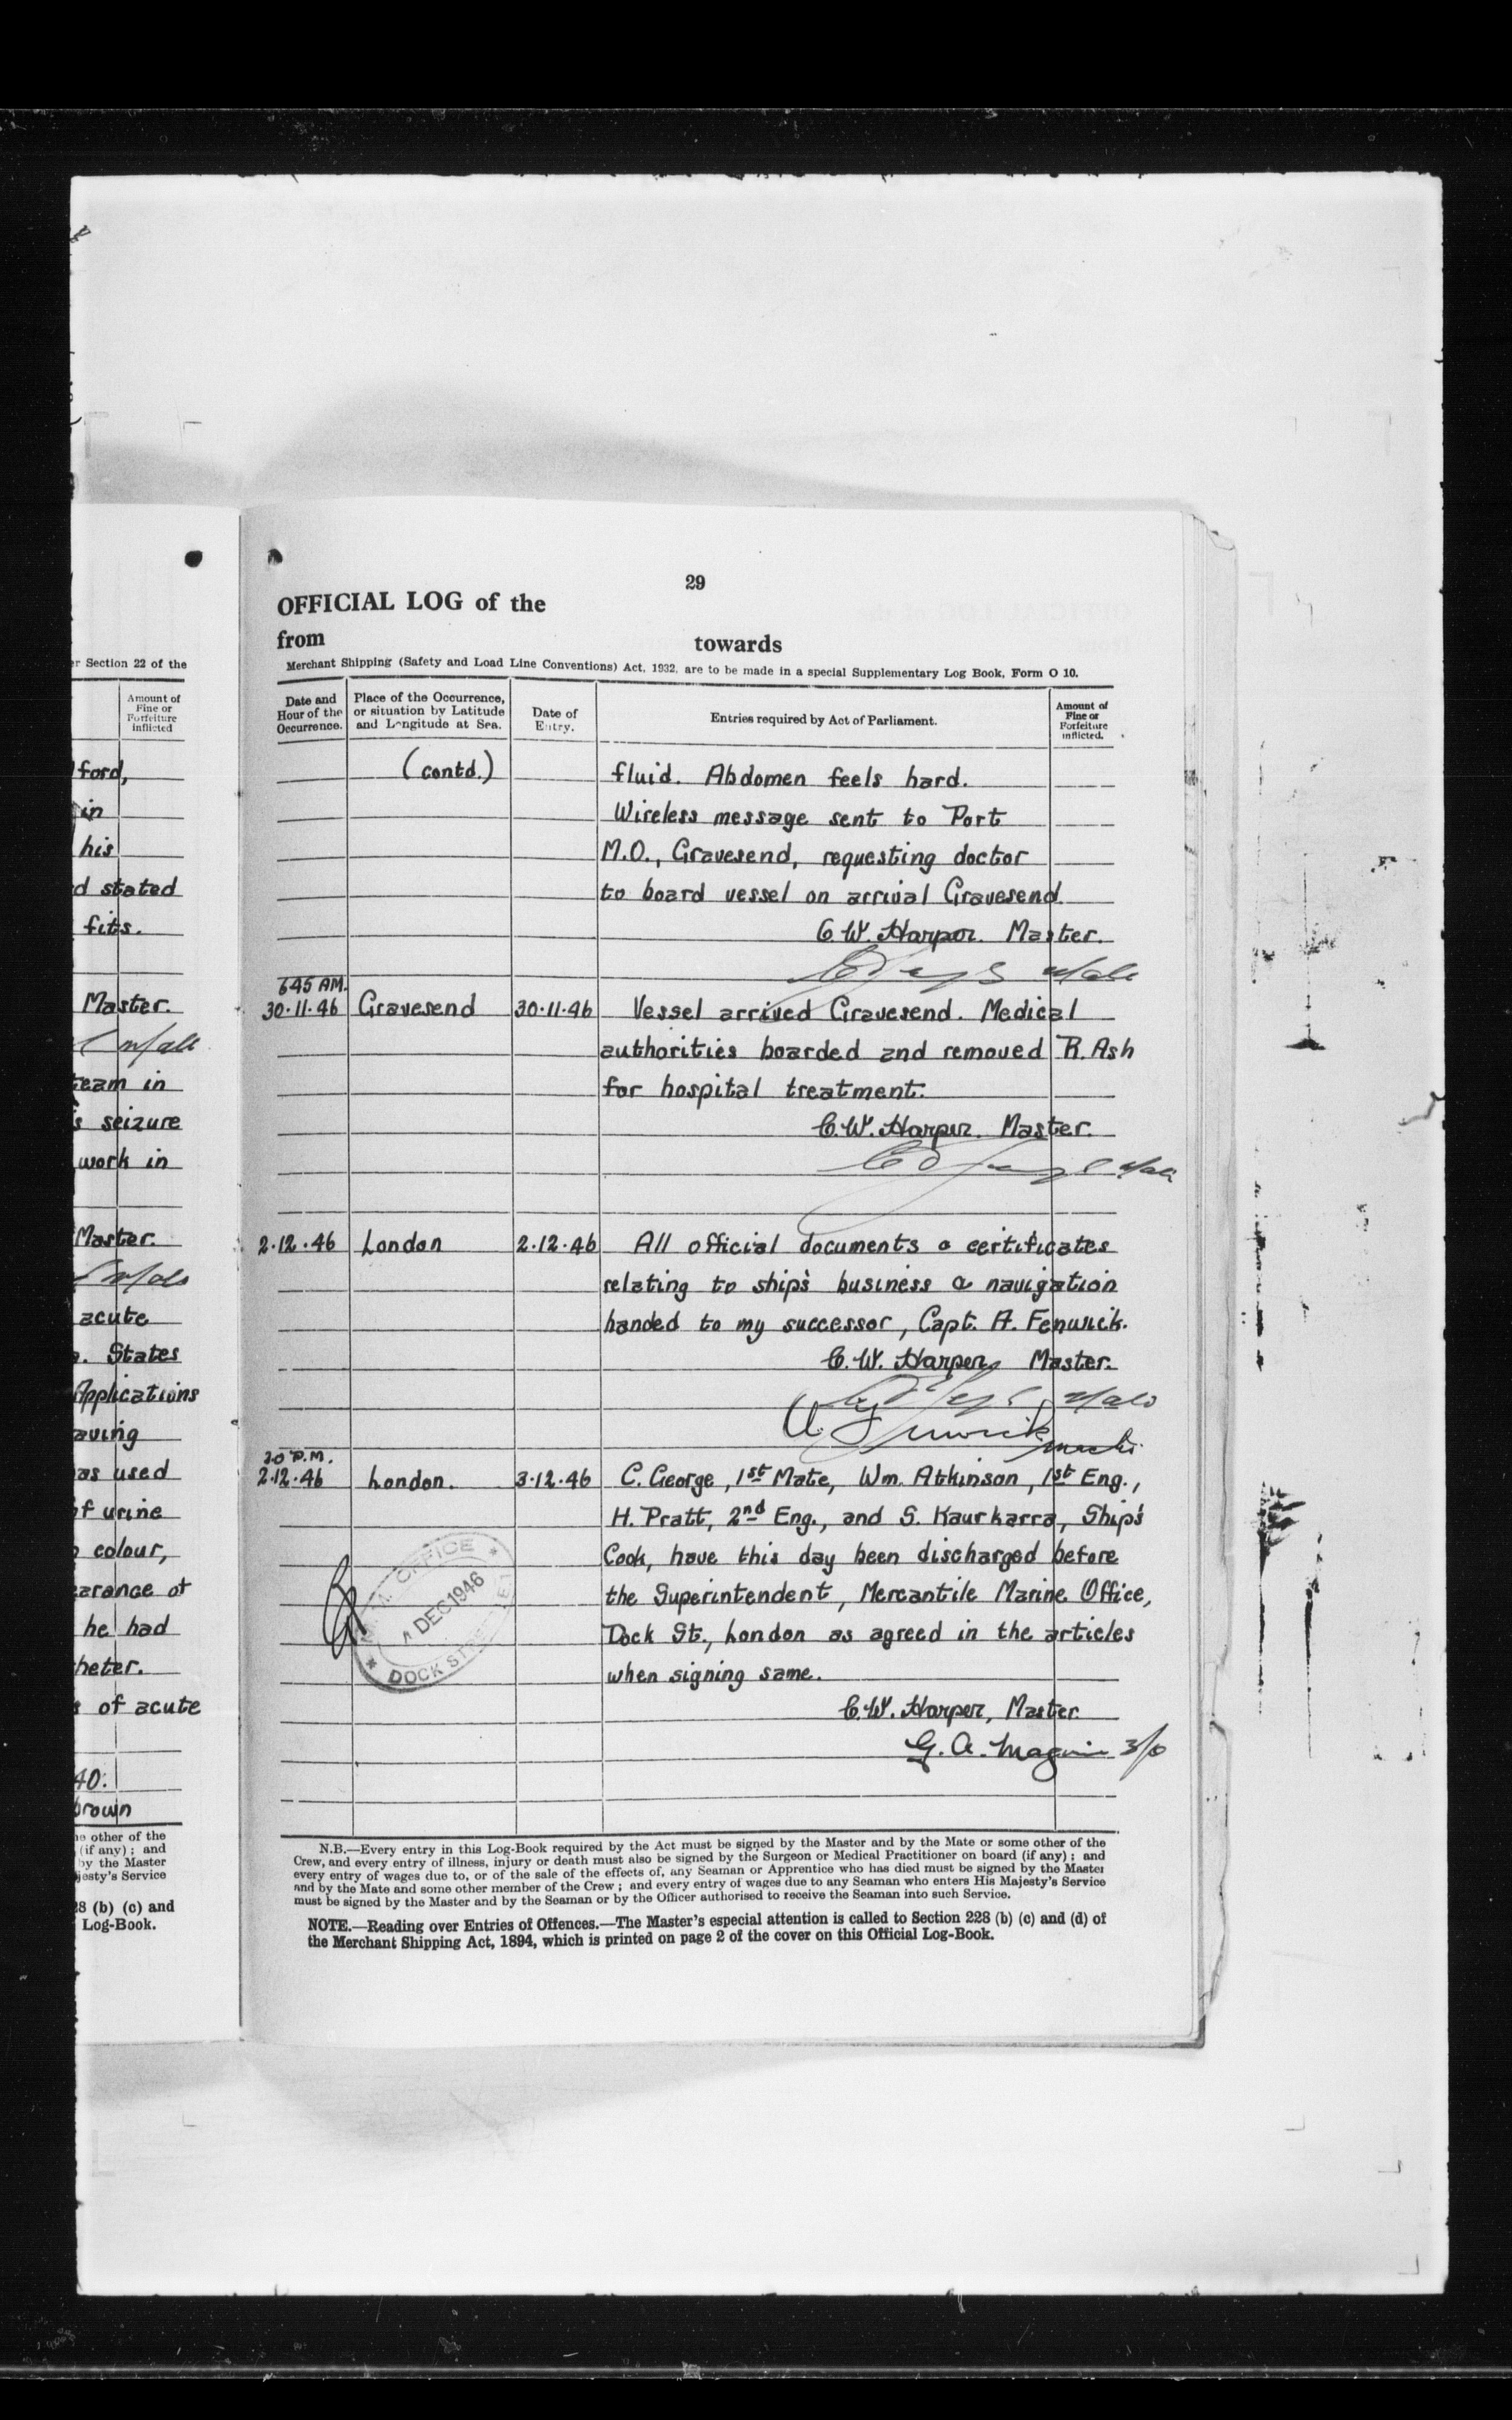 er Section 22 of the
Amount of
Fine or
Forfeiture
inflicted
ford,
in
his
d stated
fits.
Master.
team in
s seizure
work in
Master.
acute
States
Applications
aving
as used
of urine
colour,
earance of
he had
heter.
of acute
40.
brown
he other of the
(if any) ; and
by the Master
jesty's Service
28 (b) (c) and
Log-Book.
29
OFFICIAL LOG of the
from towards
Merchant Shipping (Safety and Load Line Conventions) Act, 1932, are to be made in a special Supplementary Log Book, Form O 10.
Date and
Hour of the
Occurrence.
Place of the Occurrence,
or situation by Latitude
and Longitude at Sea.
Date of
Entry.
Entries required by Act of Parliament.
Amount of
Fine or
Forfeiture
inflicted.
(contd.) fluid. Abdomen feels hard.
Wireless message sent to Port
M.O., Gravesend, requesting doctor
to board vessel on arrival Gravesend.
C.W. Harper. Master.
Mate
6 45 AM.
30.11.46 Gravesend 30.11.46 Vessel arrived Gravesend. Medical
authorities boarded and removed R. Ash
for hospital treatment.
C.W. Harper. Master.
Mate
2.12.46 London 2.12.46 All official documents & certificates
relating to ship's business & navigation
handed to my successor, Capt. A. Fenwick.
C.W. Harper, Master.
Mate
A. Fenwick
2.12.46 London. 3.12.46 C. George, 1st Mate, Wm. Atkinson, 1st Eng.,
H. Pratt, 2nd Eng., and S. Kaurkarra, Ship's
Cook, have this day been discharged before
the Superintendent, Mercantile Marine Office,
Dock St., London as agreed in the articles
when signing same.
OFFICE
DEC 1946
DOCK STREET
C.W. Harper, Master
G. A. 3/0
N.B.—Every entry in this Log-Book required by the Act must be signed by the Master and by the Mate or some other of the
Crew, and every entry of illness, injury or death must also be signed by the Surgeon or Medical Practitioner on board (if any) ; and
every entry of wages due to, or of the sale of the effects of, any Seaman or Apprentice who has died must be signed by the Master
and by the Mate and some other member of the Crew ; and every entry of wages due to any Seaman who enters His Majesty's Service
must be signed by the Master and by the Seaman or by the Officer authorised to receive the Seaman into such Service.
NOTE.—Reading over Entries of Offences.—The Master's especial attention is called to Section 228 (b) (c) and (d) of
the Merchant Shipping Act, 1894, which is printed on page 2 of the cover on this Official Log-Book.